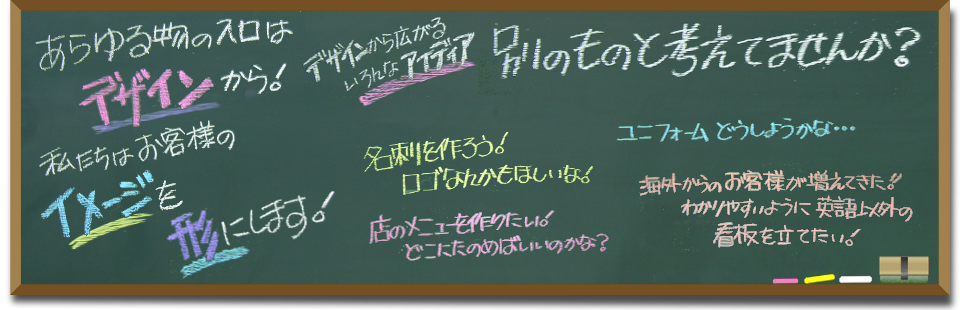 あらゆる物のスロは
デザインから!
私たちはお客様の
イメージを
形にします!
デザインから広がる
いろんなアイディア
別のものと考えてませんか?
名刺を作ろう!
ロゴなんかもほしいな!
店のメニューを作りたい!
どこにたのめばいいのかな?
ユニフォームどうしようかな…
海外からのお客様が増えてきた!!
わかりやすいように英語以外の
看板を立てたい!